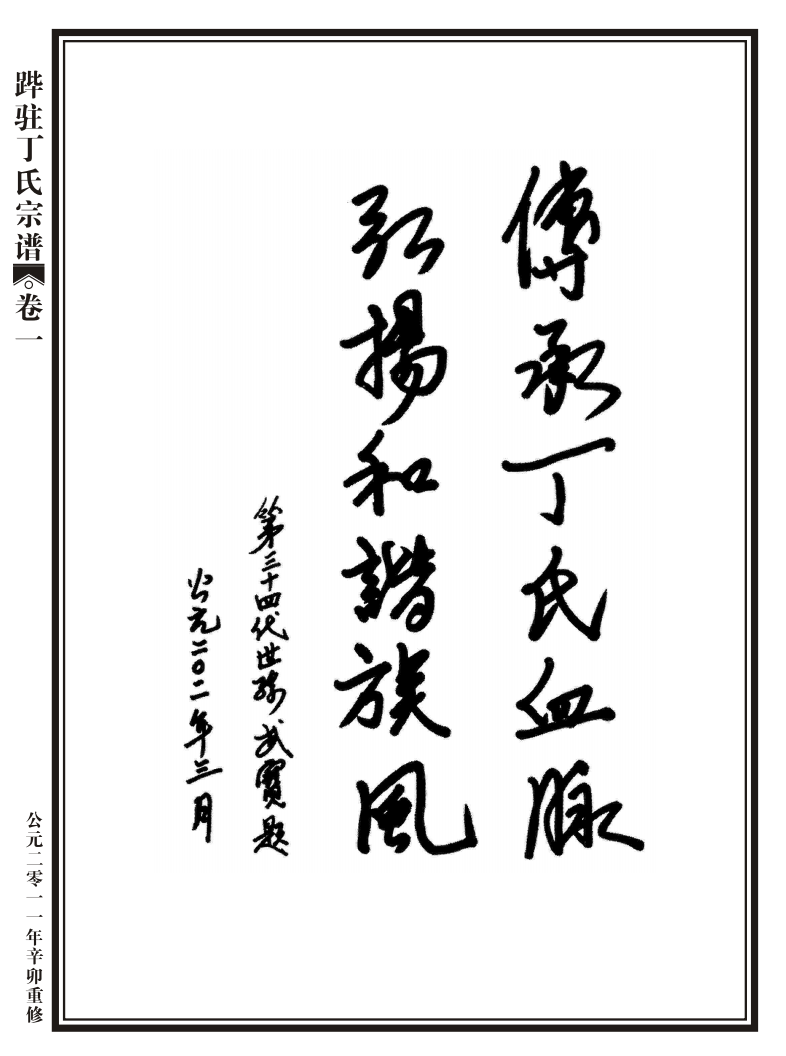 傳承丁氏血脉
弘揚和諧族風
第三十四代世孫武寶題
公元二〇一一年三月
跸驻丁氏宗谱 卷一
公元二零一一年辛卯重修